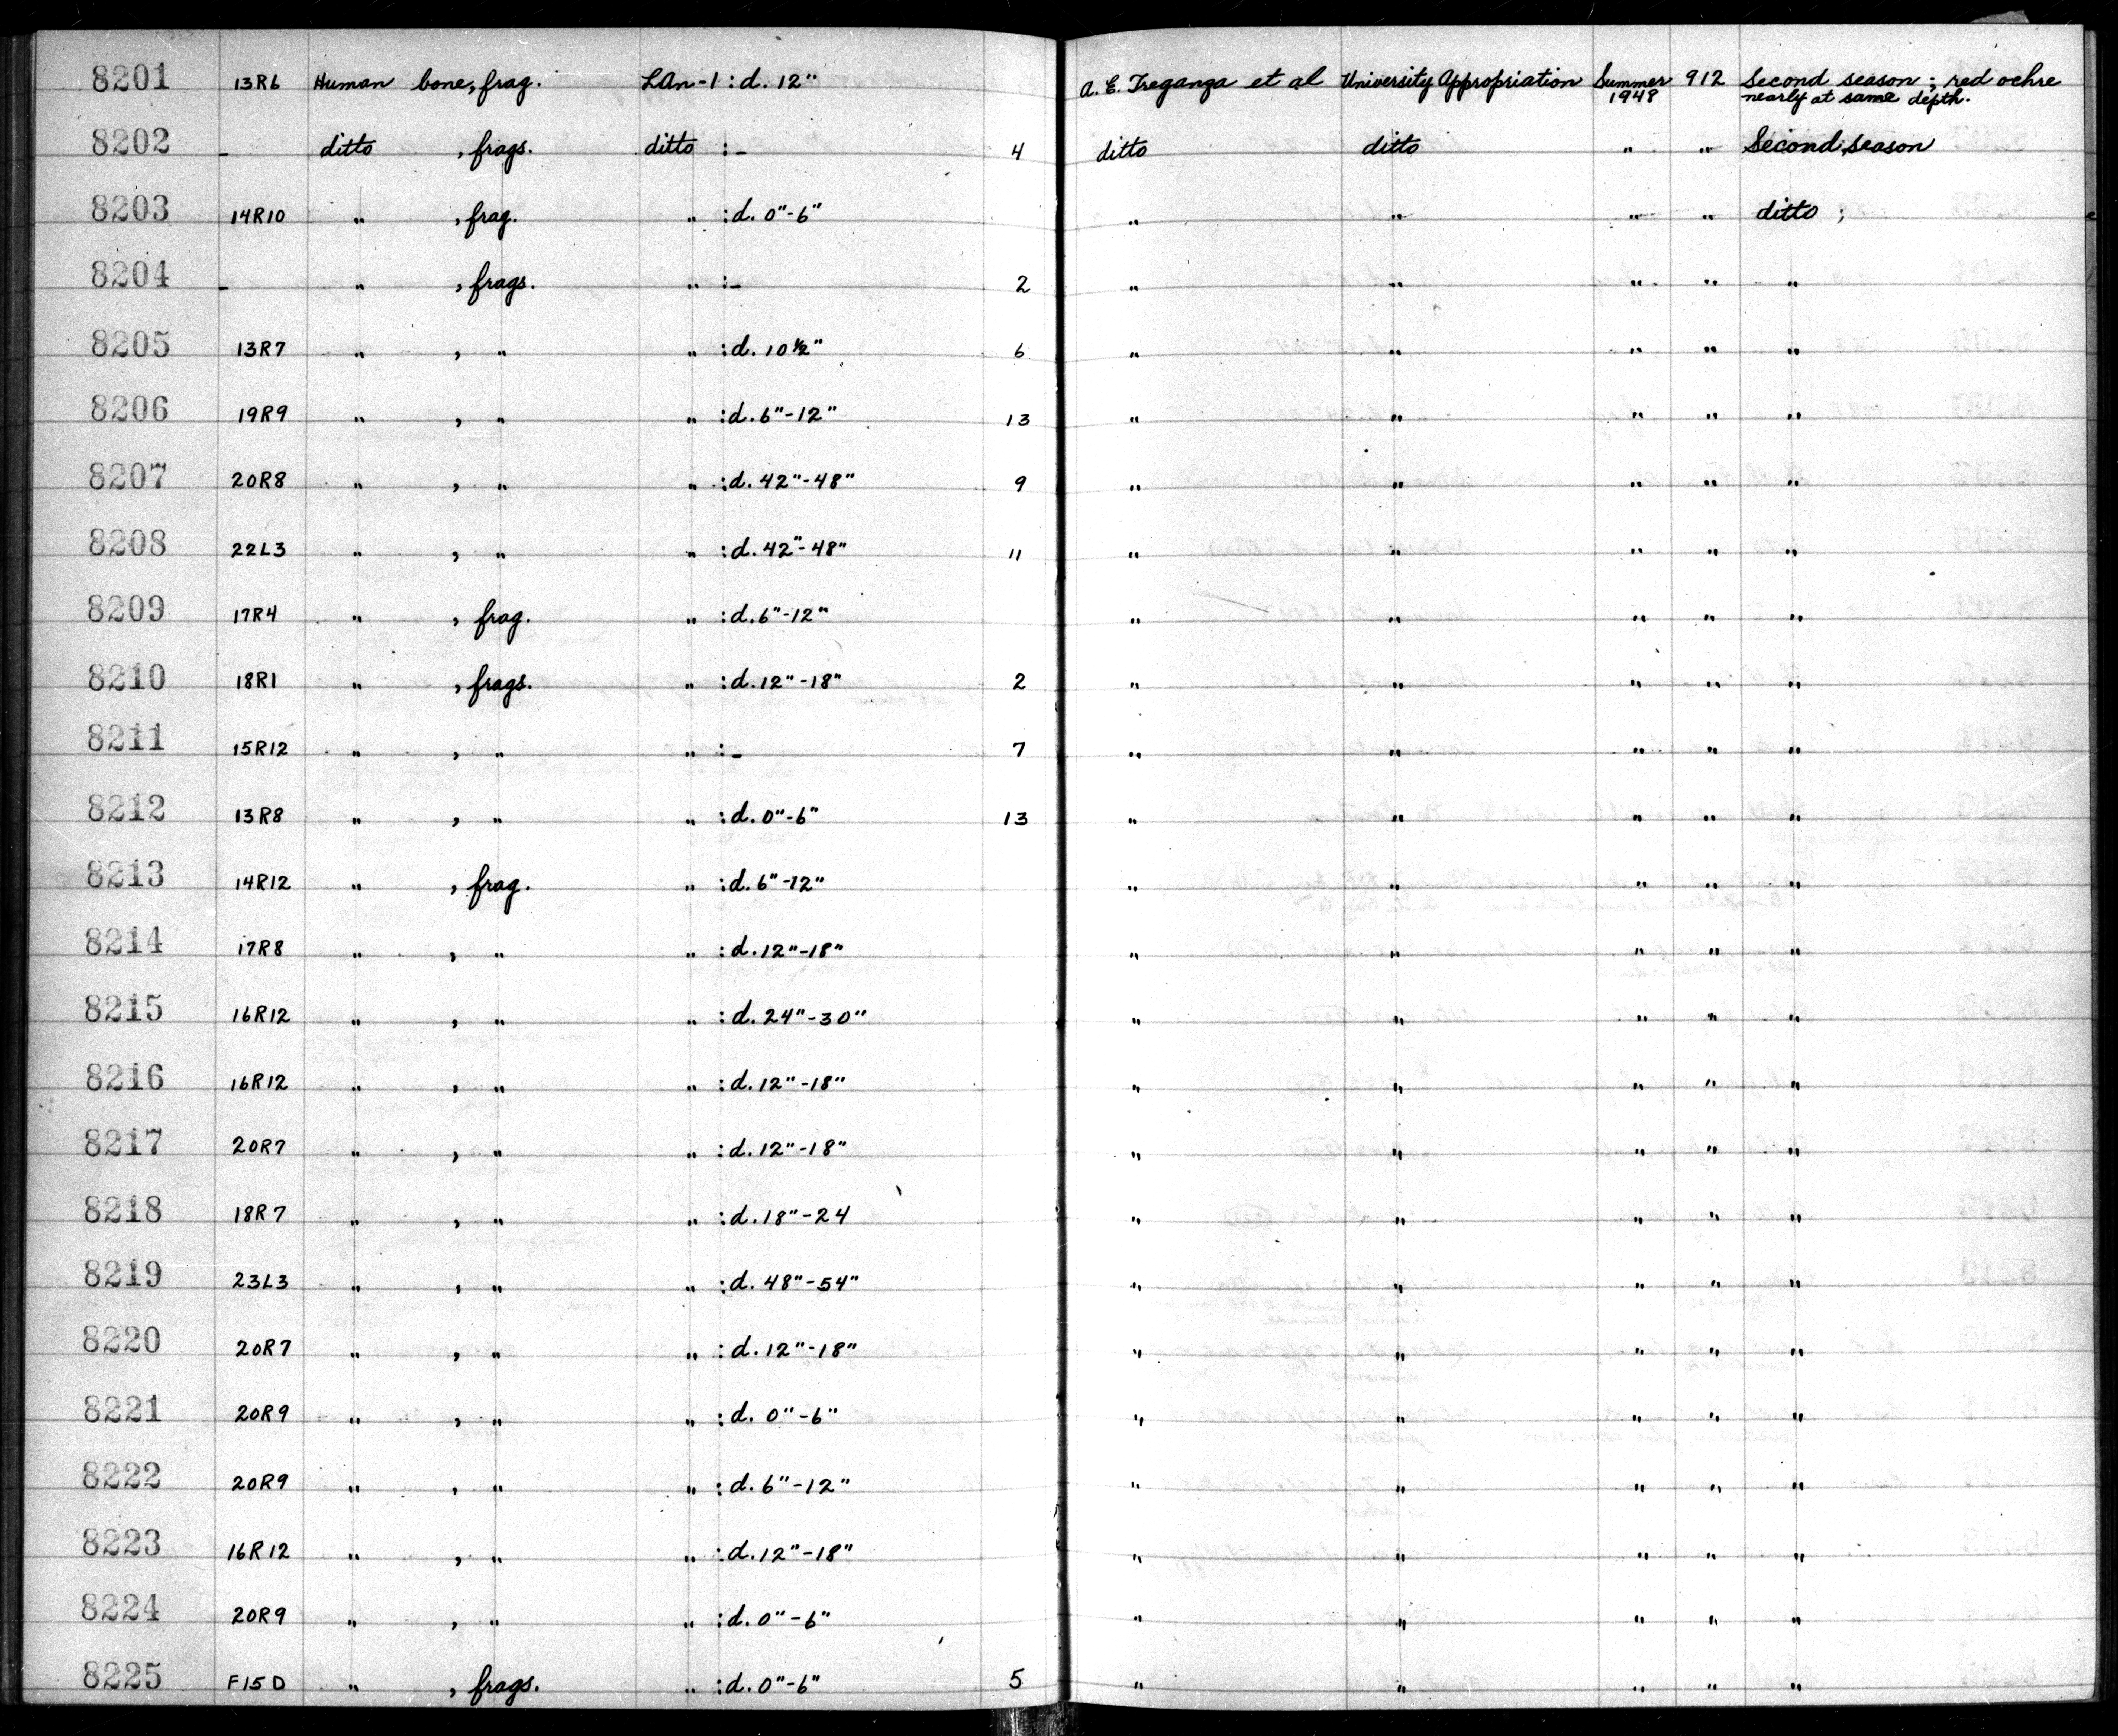 8201 13R6 Human bone, frag. LAn-1 : d. 12" A. E. Treganza et al University Appropriation Summer 1948 912 Second season ; red ochre nearly at same depth.
8202 - ditto , frags. ditto : - 4 ditto ditto " " Second season
8203 14R10 " , frag. " : d. 0"-6" " " " " ditto ;
8204 - " , frags. " : - 2 " " " " "
8205 13R7 " , " " : d. 10½" 6 " " " " "
8206 19R9 " , " " : d. 6"-12" 13 " " " " "
8207 20R8 " , " " : d. 42"-48" 9 " " " " "
8208 22L3 " , " " : d. 42"-48" 11 " " " " "
8209 17R4 " , frag. " : d. 6"-12" " " " " "
8210 18R1 " , frags. " : d. 12"-18" 2 " " " " "
8211 15R12 " , " " : - 7 " " " " "
8212 13R8 " , " " : d. 0"-6" 13 " " " " "
8213 14R12 " , frag. " : d. 6"-12" " " " " "
8214 17R8 " , " " : d. 12"-18" " " " " "
8215 16R12 " , " " : d. 24"-30" " " " " "
8216 16R12 " , " " : d. 12"-18" " " " " "
8217 20R7 " , " " : d. 12"-18" " " " " "
8218 18R7 " , " " : d. 18"-24 " " " " "
8219 23L3 " , " " : d. 48"-54" " " " " "
8220 20R7 " , " " : d. 12"-18" " " " " "
8221 20R9 " , " " : d. 0"-6" " " " " "
8222 20R9 " , " " : d. 6"-12" " " " " "
8223 16R12 " , " " : d. 12"-18" " " " " "
8224 20R9 " , " " : d. 0"-6" " " " " "
8225 F15D " , frags. " : d. 0"-6" 5 " " " " "